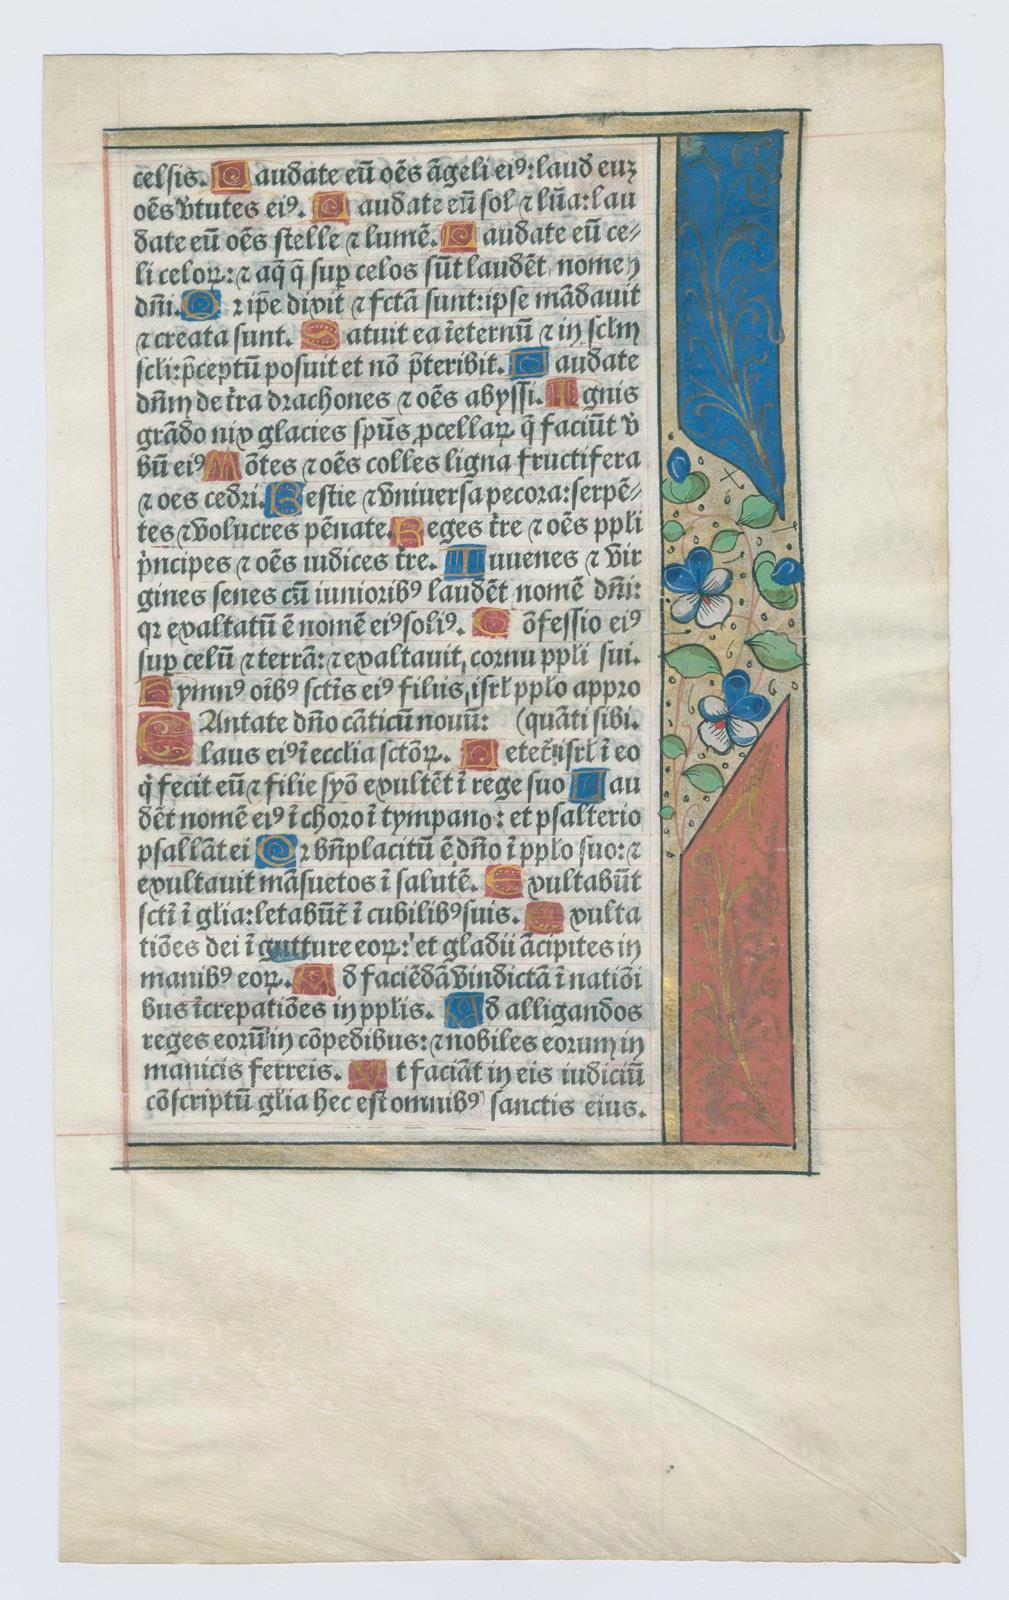 celsis. Laudate eū oēs āgeli eiꝰ: laud euꝫ
oēs v̄tutes eiꝰ. Laudate eū sol ⁊ lūa: lau
date eū oēs stelle ⁊ lumē. Laudate eū ce⸗
li celoꝝ: ⁊ aq̄ q̄ suꝑ celos sūt laudēt nomen
dn̄i. Qꝛ ip̄e dixit ⁊ fctā sunt: ipse mādauit
⁊ creata sunt. Statuit ea īeternū ⁊ in sclm
scli: p̄ceptū posuit et nō p̄teribit. Laudate
dn̄m de t̄ra drachones ⁊ oēs abyssi. Ignis
grādo nix glacies spūs ꝓcellaꝝ q̄ faciūt v̄
bū eiꝰ Mōtes ⁊ oēs colles ligna fructifera
⁊ oes cedri. Bestie ⁊ vniuersa pecora: serpē⸗
tes ⁊ volucres pēnate. Reges t̄re ⁊ oēs ppli
p̍ncipes ⁊ oēs iudices t̄re. Iuuenes ⁊ vir
gines senes cū iunioribꝰ laudēt nomē dn̄i:
qꝛ exaltatū ē nomē eiꝰ soliꝰ. Cōfessio eiꝰ
suꝑ celū ⁊ terrā: ⁊ exaltauit cornu ppli sui.
Hymnꝰ oībꝰ sctīs eiꝰ filiis isrl pplo appro
CAntate dn̄o cāticū nouū: (quāti sibi.
laus eiꝰ ī ecclia sctōꝝ. Letet̄ isrl ī eo
q̍ fecit eū ⁊ filie syō exultēt ī rege suo Lau
dēt nomē eiꝰ ī choro ī tympano: et psalterio
psallāt ei Qꝛ bn̄placitū ē dn̄o ī pplo suo: ⁊
exultauit māsuetos ī salutē. Exultabūt
sctī ī glia: letabūt̄ ī cubilibꝰ suis. Exulta
tiōes dei ī gutture eoꝝ: et gladii ācipites in
manibꝰ eoꝝ. Ad faciēdā vindictā ī natiōi
bus īcrepatiōes in pplis. Ad alligandos
reges eorū in cōpedibus: ⁊ nobiles eorum in
manicis ferreis. Vt faciāt in eis iudiciū
cōscriptū glia hec est omnibꝰ sanctis eius.